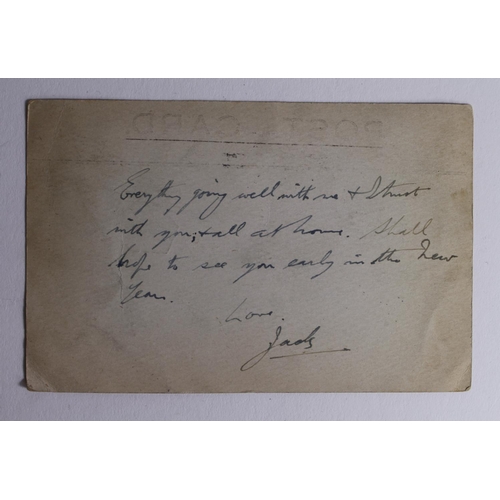 POST CARD
Everything going well with me & I trust
with you, & all at home. Shall
hope to see you early in the New
Year.
Love.
Jack